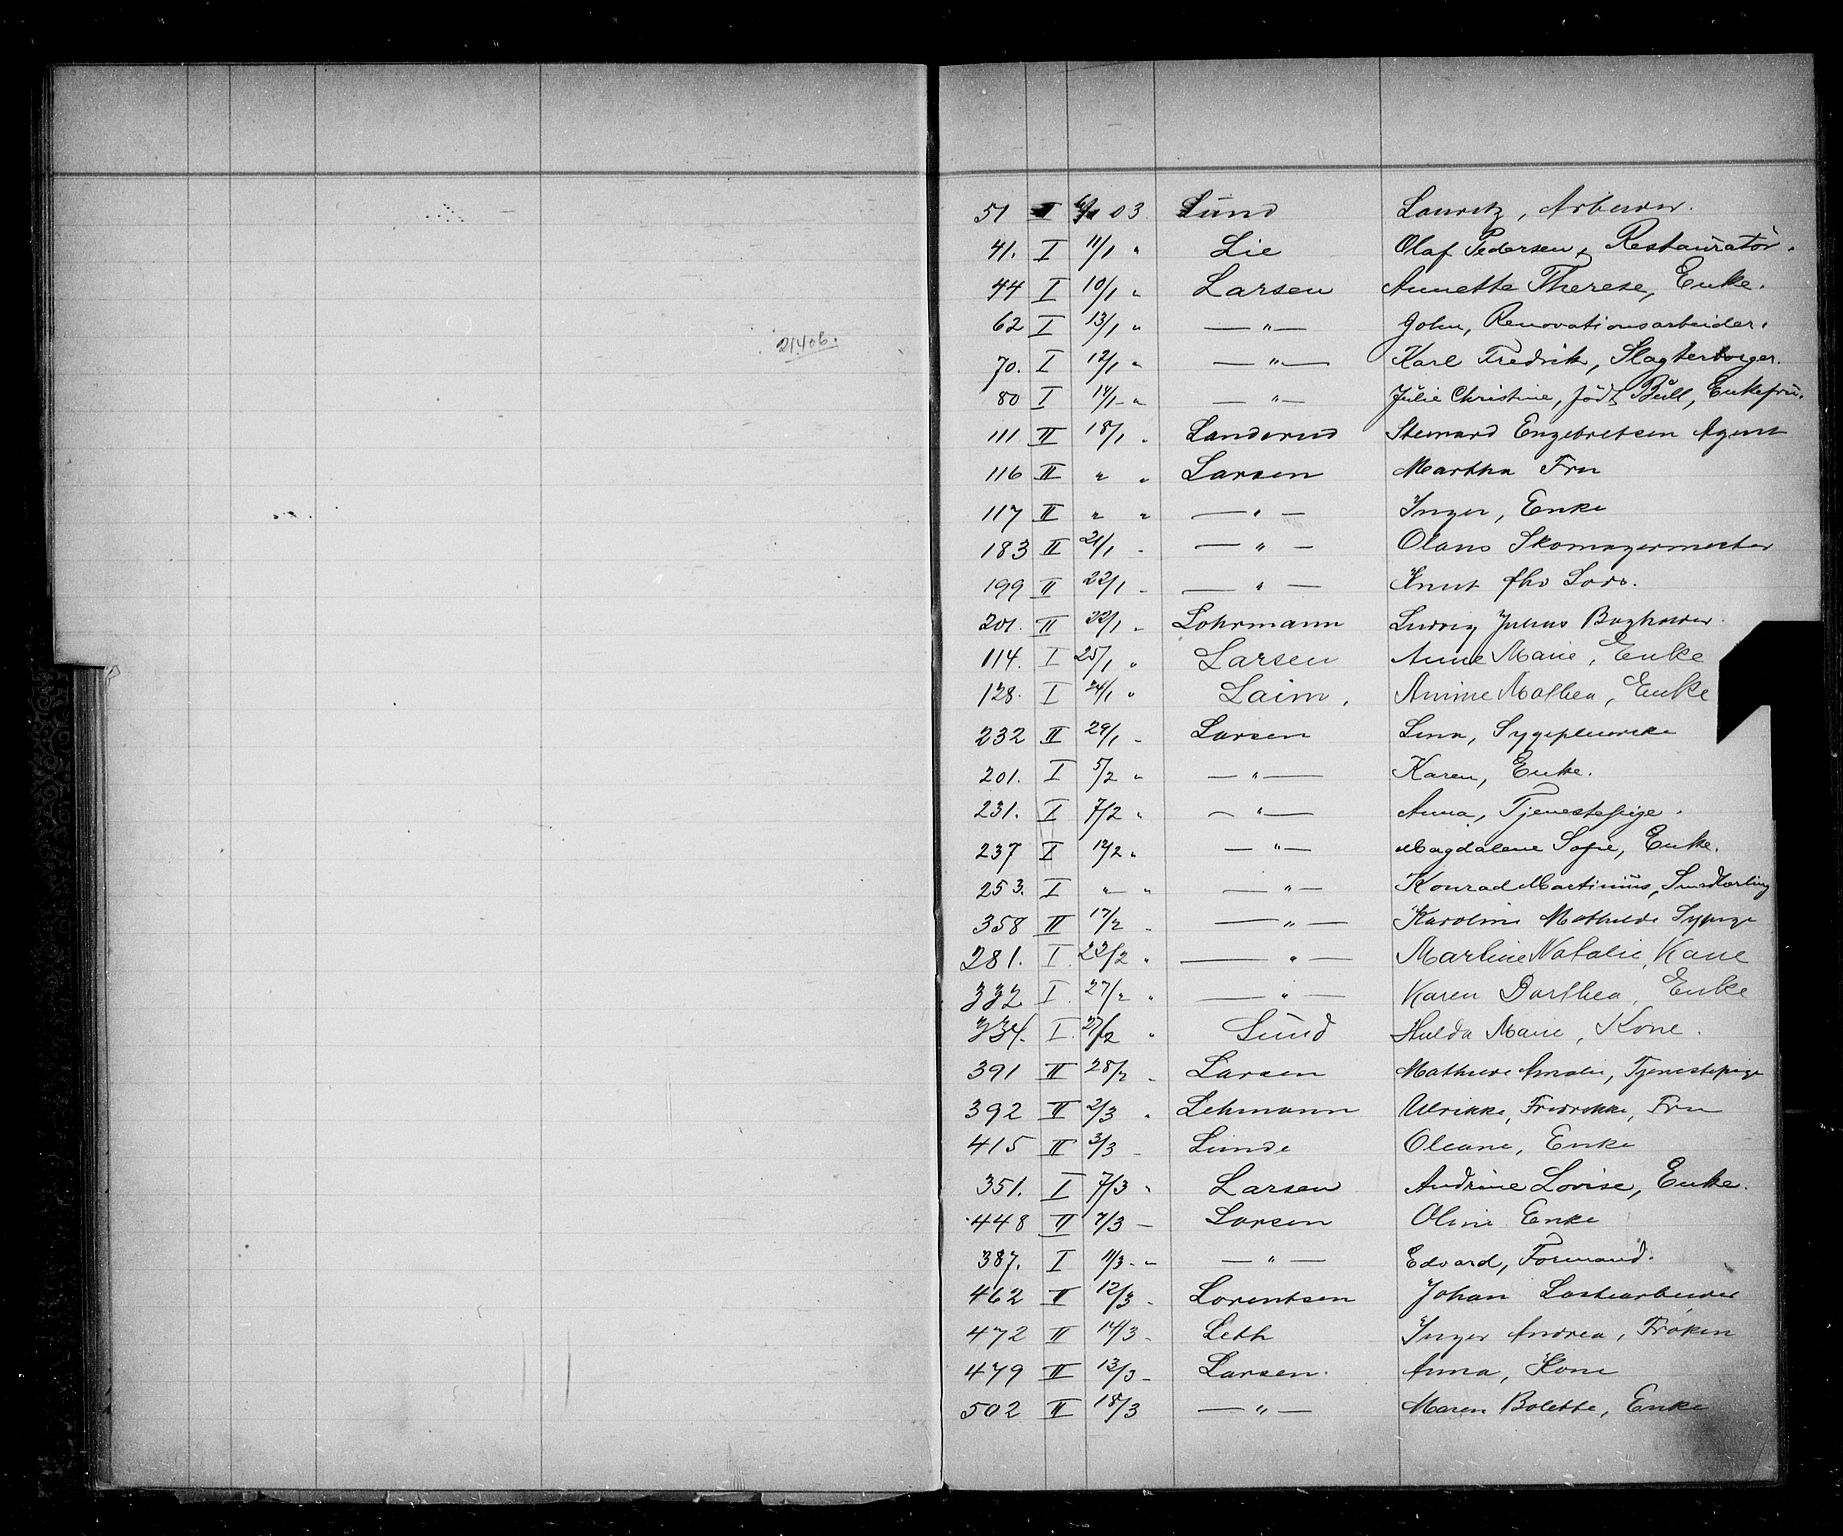 21406.
51 I 6/1 03 Lund Lauritz, Arbeider.
41. I 11/1 " Lie Olaf Pedersen, Restauratør.
44 I 10/1 " Larsen Annette Therese, Enke.
62 I 13/1 " — " — John, Renovationsarbeider.
70. I 12/1 " — " — Karl Fredrik, Slagterborger.
80 I 14/1 - " — " — Julie Christine, født Bull, Enkefru.
111 II 18/1 " Landerud Steinard Engebretsen Agent
116 II " " Larsen Martha Fru
117 II " " — " — Inger, Enke
183 II 21/1 - — " — Olaus Skomagermester
199 II 22/1 - — " — Knut fhv
201. II 22/1 - Lohrmann Ludvig Julius Bogholder.
114. I 25/1 " Larsen Anne Marie, Enke
128. I 24/1 " Laim, Amine Mathea, Enke
232 II 29/1 - Larsen Lina, Sygepleierske
201. I 5/2 " — " — Karen, Enke.
231. I 7/2 " — " — Anna, Tjenestepige.
237 I 12/2 " — " — Magdalene Sofie, Enke.
253. I " " — " — Konrad Martinius, Smedlærling
358 II 17/2 - — " — Karoline Mathilde Sypige
281. I 22/2 " — " — Martine Natalie, Kone
332 I 27/2 " — " — Karen Dorthea, Enke
334. I 27/2 " Lund Hulda Marie, Kone.
391 II 28/2 - Larsen Mathilde Amalie, Tjenestepige
392 II 2/3 " Lehmann Ulrikke, Fredrikke, Fru
415 II 3/3 - Lunde Oleane, Enke
351. I 7/3 " Larsen Andrine Lovise, Enke.
448 II 7/3 — Larsen Oline Enke
387. I 11/3 - " — " — Edvard, Formand.
462 II 12/3 - Lorentsen Johan Lostearbeider
472 II 14/3 - Leth Inger Andrea, Frøken
479 II 13/3 - Larsen. Anna, Kone
502 II 18/3 — " — Maren Bolette, Enke